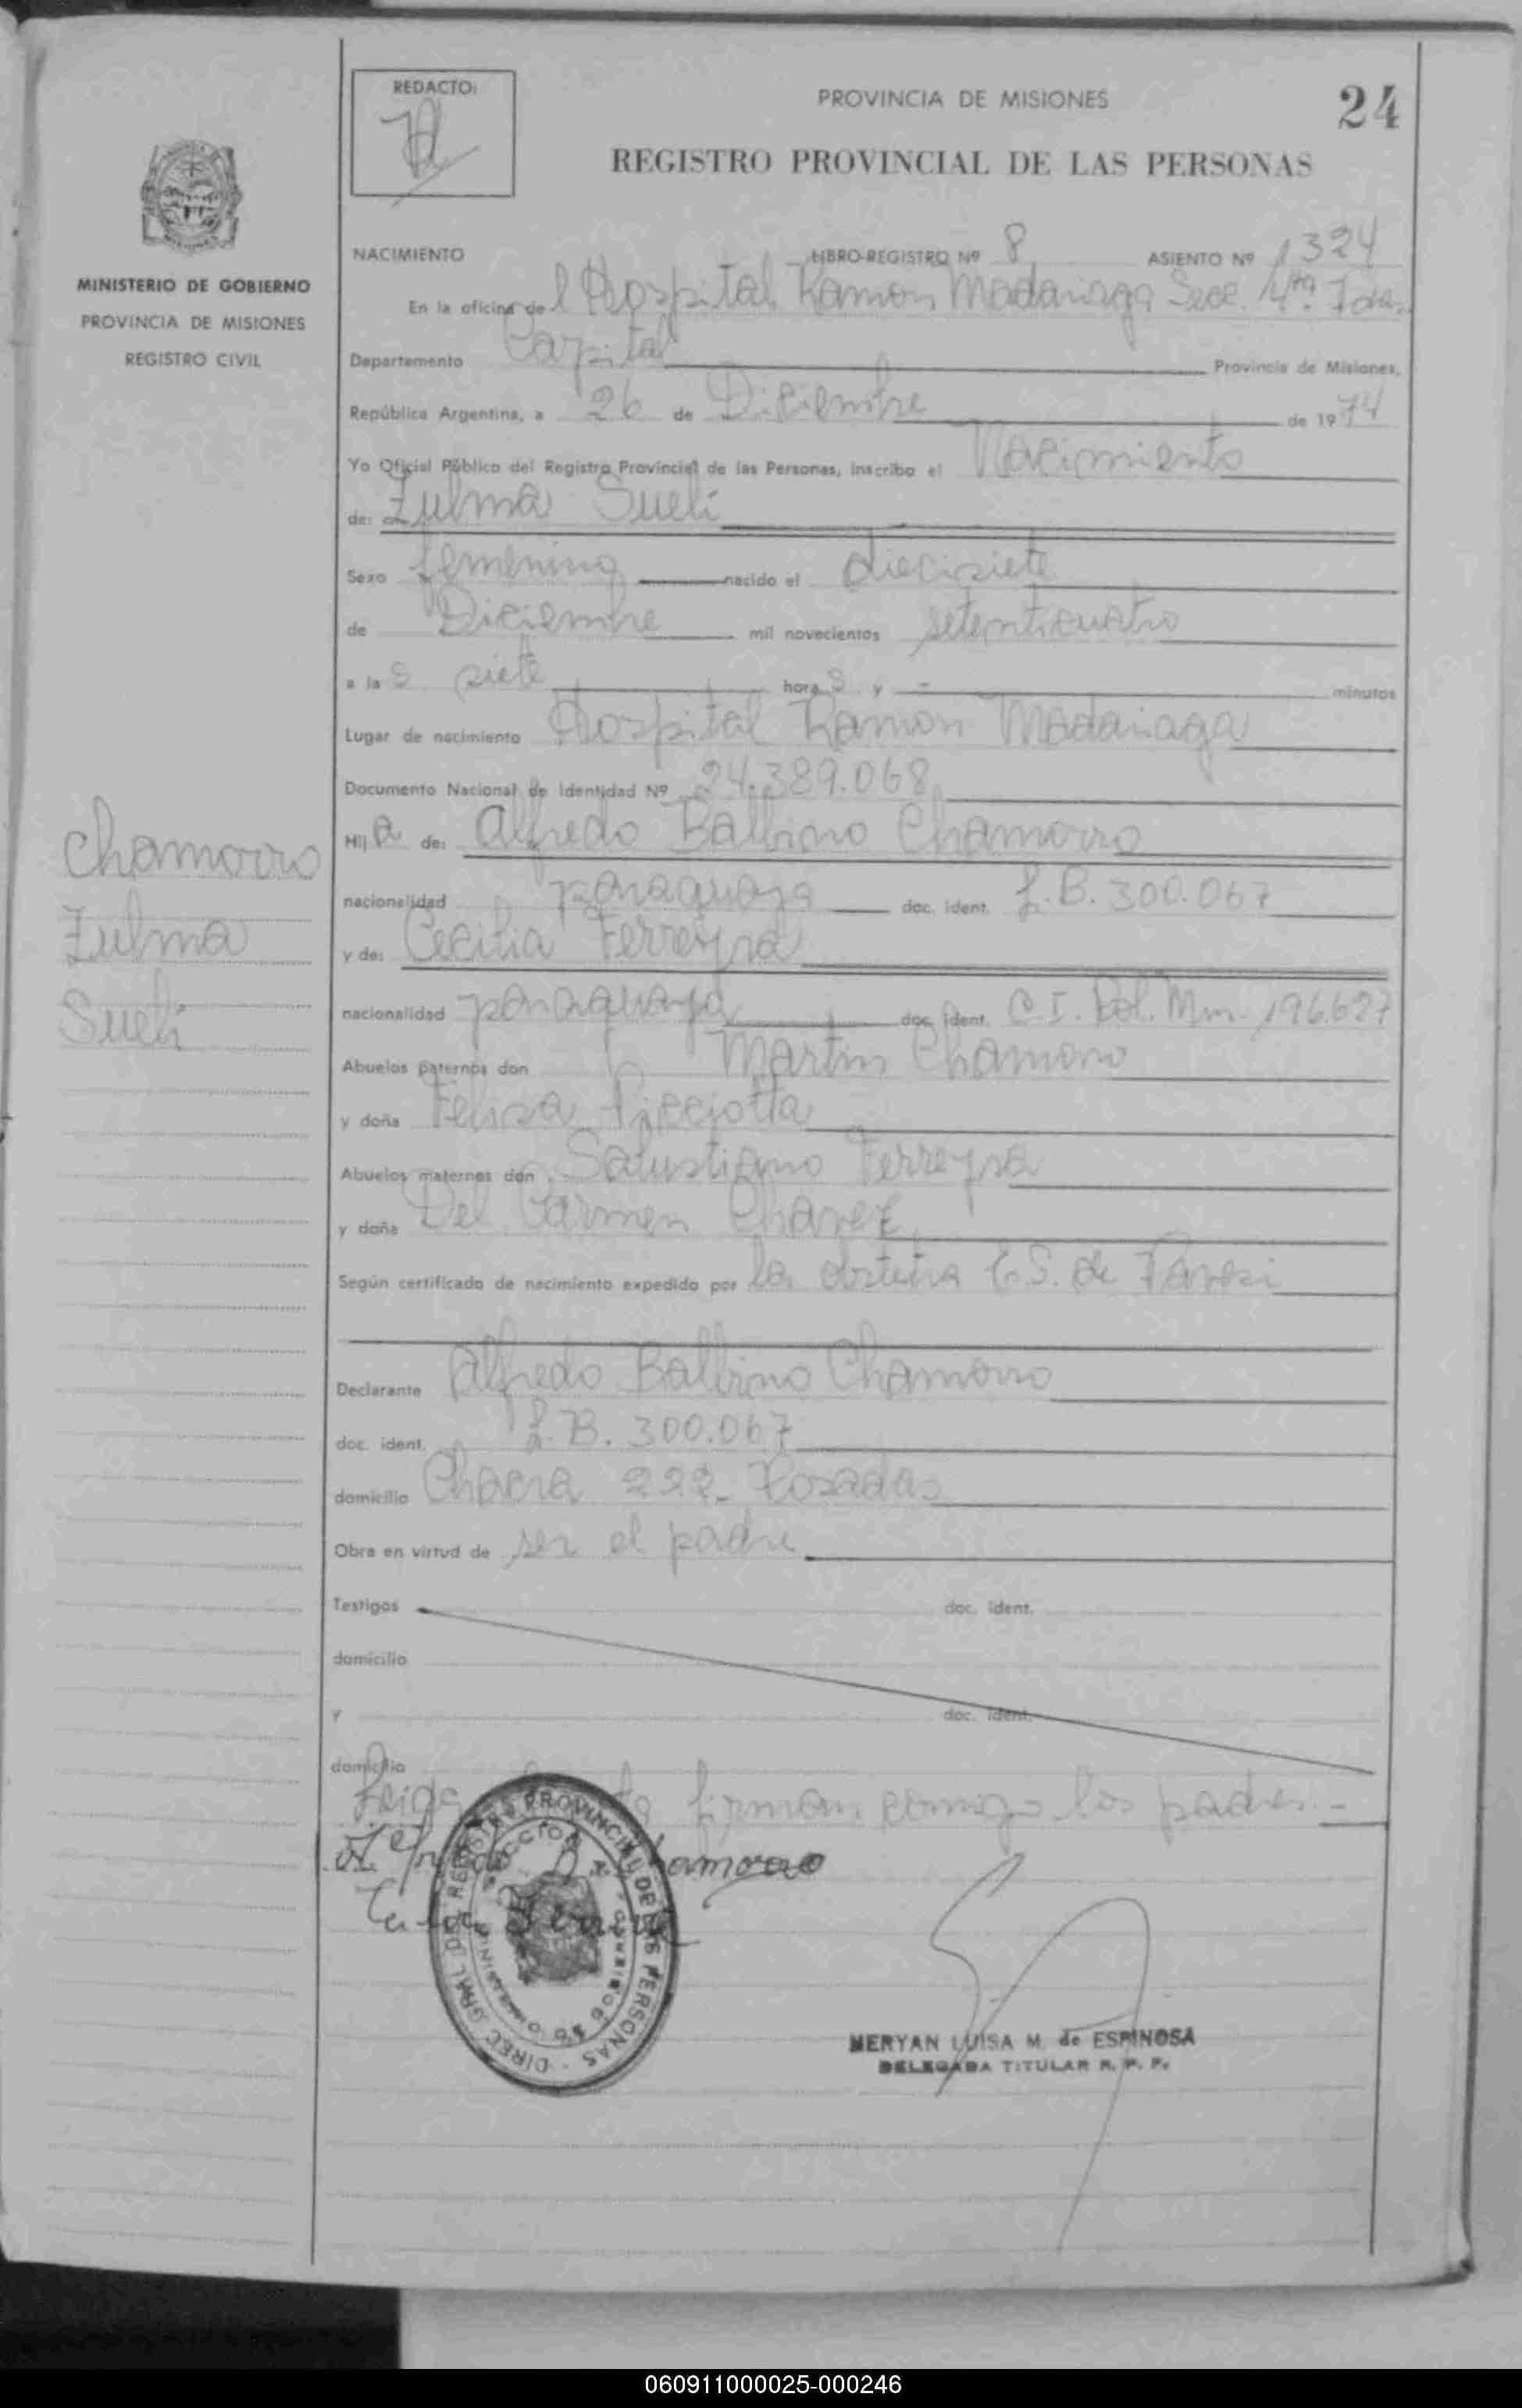 REDACTO:
PROVINCIA DE MISIONES
24
REGISTRO PROVINCIAL DE LAS PERSONAS
MINISTERIO DE GOBIERNO
PROVINCIA DE MISIONES
REGISTRO CIVIL
NACIMIENTO LIBRO-REGISTRO Nº 8 ASIENTO Nº 1324
En la oficina del Hospital Ramon Madariaga Secc. 4ta.
Departamento Capital Provincia de Misiones,
República Argentina, a 26 de Diciembre de 1974
Yo Oficial Público del Registro Provincial de las Personas, inscribo el Nacimiento
de: Zulma Sueli
Sexo femenino nacido el diecisiete
de Diciembre mil novecientos setenticuatro
a las siete horas y - minutos
Lugar de nacimiento Hospital Ramon Madariaga
Documento Nacional de Identidad Nº 24.389.068
Hija de: Alfredo Balbino Chamorro
nacionalidad paraguaya doc. ident. L.B. 300.067
y de: Cecilia Ferreyra
nacionalidad paraguaya doc. ident. C.I. Pol. Mnes. 196.627
Abuelos paternos don Martin Chamorro
y doña Felisa
Abuelos maternos don Salustiano Ferreyra
y doña Del Carmen Chavez
Según certificado de nacimiento expedido por la obstetra C.S. de
Declarante Alfredo Balbino Chamorro
doc. ident. L.B. 300.067
domicilio Chacra 222 - Posadas
Obra en virtud de ser el padre
Testigos doc. ident.
domicilio
y doc. ident.
domicilio
firman conmigo los padres.-
Chamorro
Zulma
Sueli
DIREC. GRAL. DEL REGISTRO PROVINCIAL DE LAS PERSONAS
MERYAN LUISA M. de ESPINOSA
DELEGADA TITULAR R. P. P.
060911000025-000246